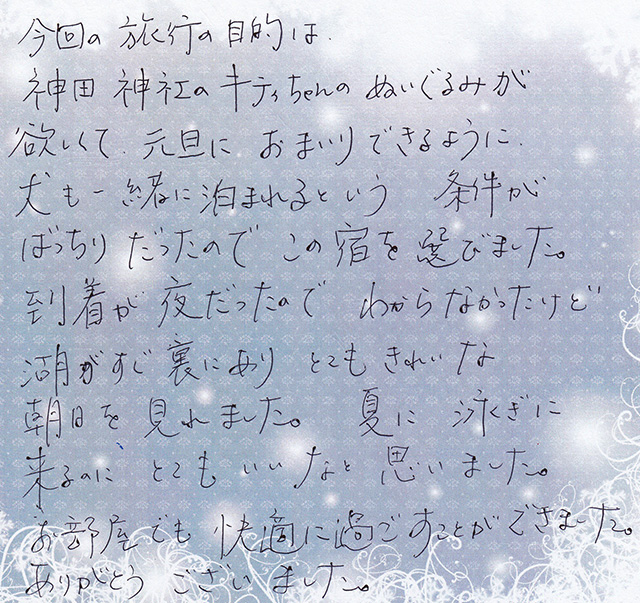 今回の旅行の目的は、
神田神社のキティちゃんのぬいぐるみが
欲しくて、元旦におまいりできるように、
犬も一緒に泊まれるという 条件が
ばっちりだったのでこの宿を選びました。
到着が夜だったので わからなかったけど
湖がすぐ裏にあり とてもきれいな
朝日を見れました。 夏に 泳ぎに
来るのに とてもいいなと 思いました。
お部屋でも 快適に過ごすことができました。
ありがとう ございました。